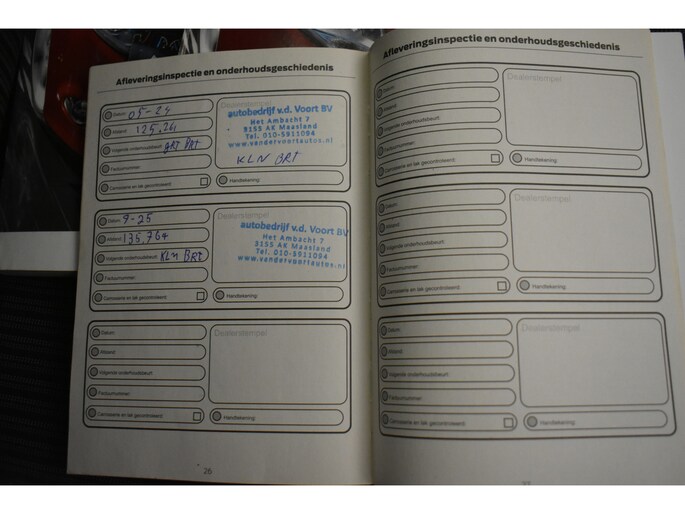 Afleveringsinspectie en onderhoudsgeschiedenis
Datum: 05-24
Afstand: 125,261
Volgende onderhoudsbeurt: GRT BRT
Factuurnummer:
Carrosserie en lak gecontroleerd:
Dealerstempel
autobedrijf v.d. Voort BV
Het Ambacht 7
3155 AK Maasland
Tel. 010-5911094
www.vandervoortautos.nl
KLN BRT
Handtekening:
Datum: 9-25
Afstand: 135,764
Volgende onderhoudsbeurt: KLN BRT
Factuurnummer:
Carrosserie en lak gecontroleerd:
Dealerstempel
autobedrijf v.d. Voort BV
Het Ambacht 7
3155 AK Maasland
Tel. 010-5911094
www.vandervoortautos.nl
Handtekening:
Datum:
Afstand:
Volgende onderhoudsbeurt:
Factuurnummer:
Carrosserie en lak gecontroleerd:
Dealerstempel
Handtekening:
26
Afleveringsinspectie en onderhoudsgeschiedenis
Datum:
Afstand:
Volgende onderhoudsbeurt:
Factuurnummer:
Carrosserie en lak gecontroleerd:
Dealerstempel
Handtekening:
Datum:
Afstand:
Volgende onderhoudsbeurt:
Factuurnummer:
Carrosserie en lak gecontroleerd:
Dealerstempel
Handtekening:
Datum:
Afstand:
Volgende onderhoudsbeurt:
Factuurnummer:
Carrosserie en lak gecontroleerd:
Dealerstempel
Handtekening: